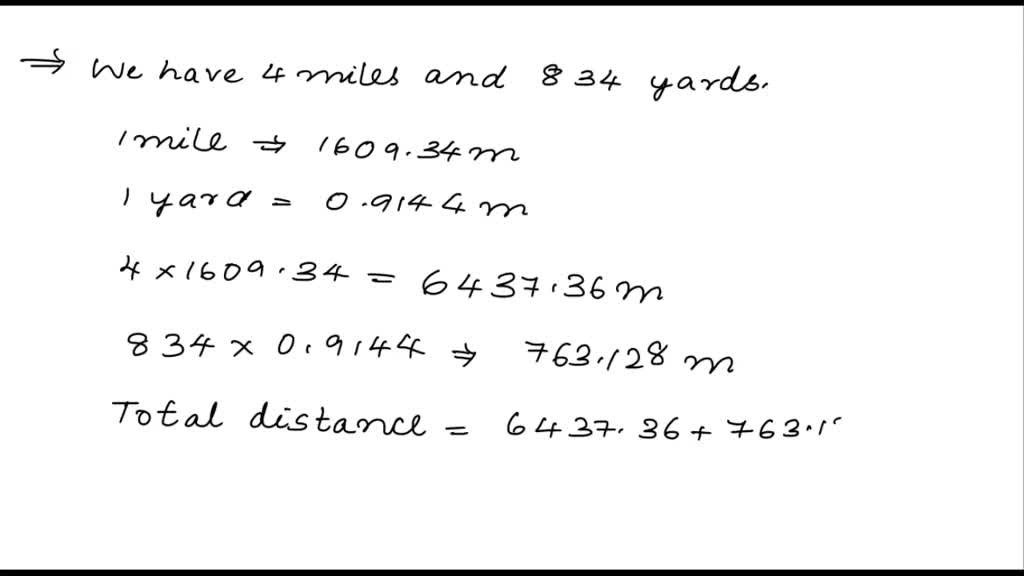 ⇒ We have 4 miles and 834 yards.
1 mile ⇒ 1609.34 m
1 yard = 0.9144 m
4 × 1609.34 = 6437.36 m
834 × 0.9144 ⇒ 763.128 m
Total distance = 6437.36 + 763.1